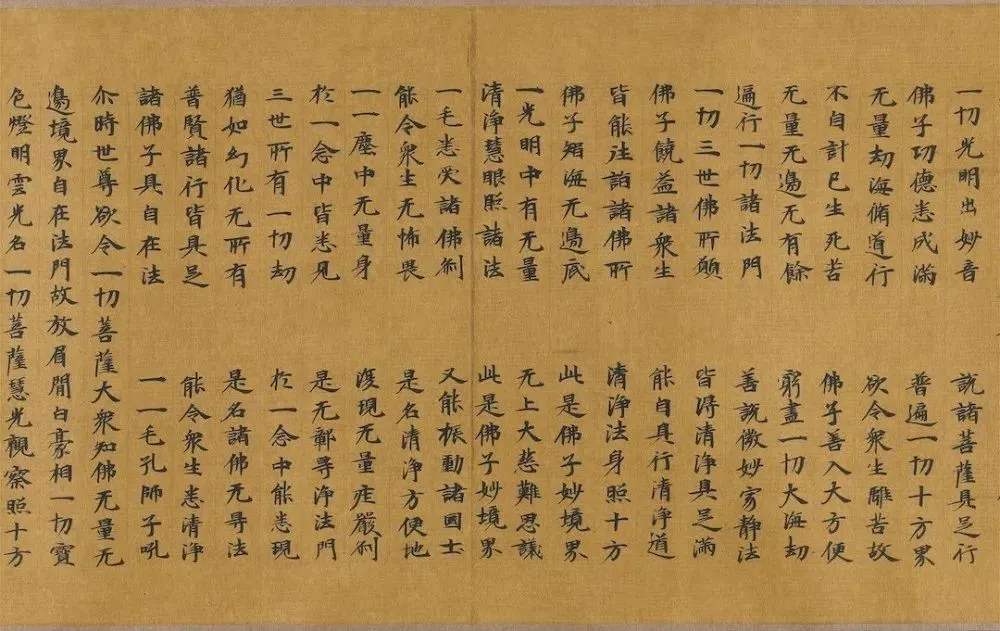 一切光明出妙音　說諸菩薩具足行
佛子功德悉成滿　普遍一切十方界
无量劫海脩道行　欲令衆生離苦故
不自計已生死苦　佛子善入大方便
无量无邊无有餘　窮盡一切大海劫
遍行一切諸法門　善說微妙寂靜法
一切三世佛所願　皆得清淨具足滿
佛子饒益諸衆生　能自具行清淨道
皆能往詣諸佛所　清淨法身照十方
佛子智海无邊底　此是佛子妙境界
一光明中有无量　无上大慈難思議
清淨慧眼照諸法　此是佛子妙境界
一毛悉受諸佛刹　又能振動諸國土
能令衆生无怖畏　是名清淨方便地
一一塵中无量身　復現无量庄嚴刹
於一念中皆悉見　是无鄣㝵淨法門
三世所有一切劫　於一念中能悉現
猶如幻化无所有　是名諸佛无㝵法
普賢諸行皆具足　能令衆生悉清淨
諸佛子具自在法　一一毛孔師子吼
尒時世尊欲令一切菩薩大衆知佛无量无
邊境界自在法門故放眉間白豪相一切寶
色燈明雲光名一切菩薩慧光觀察照十方